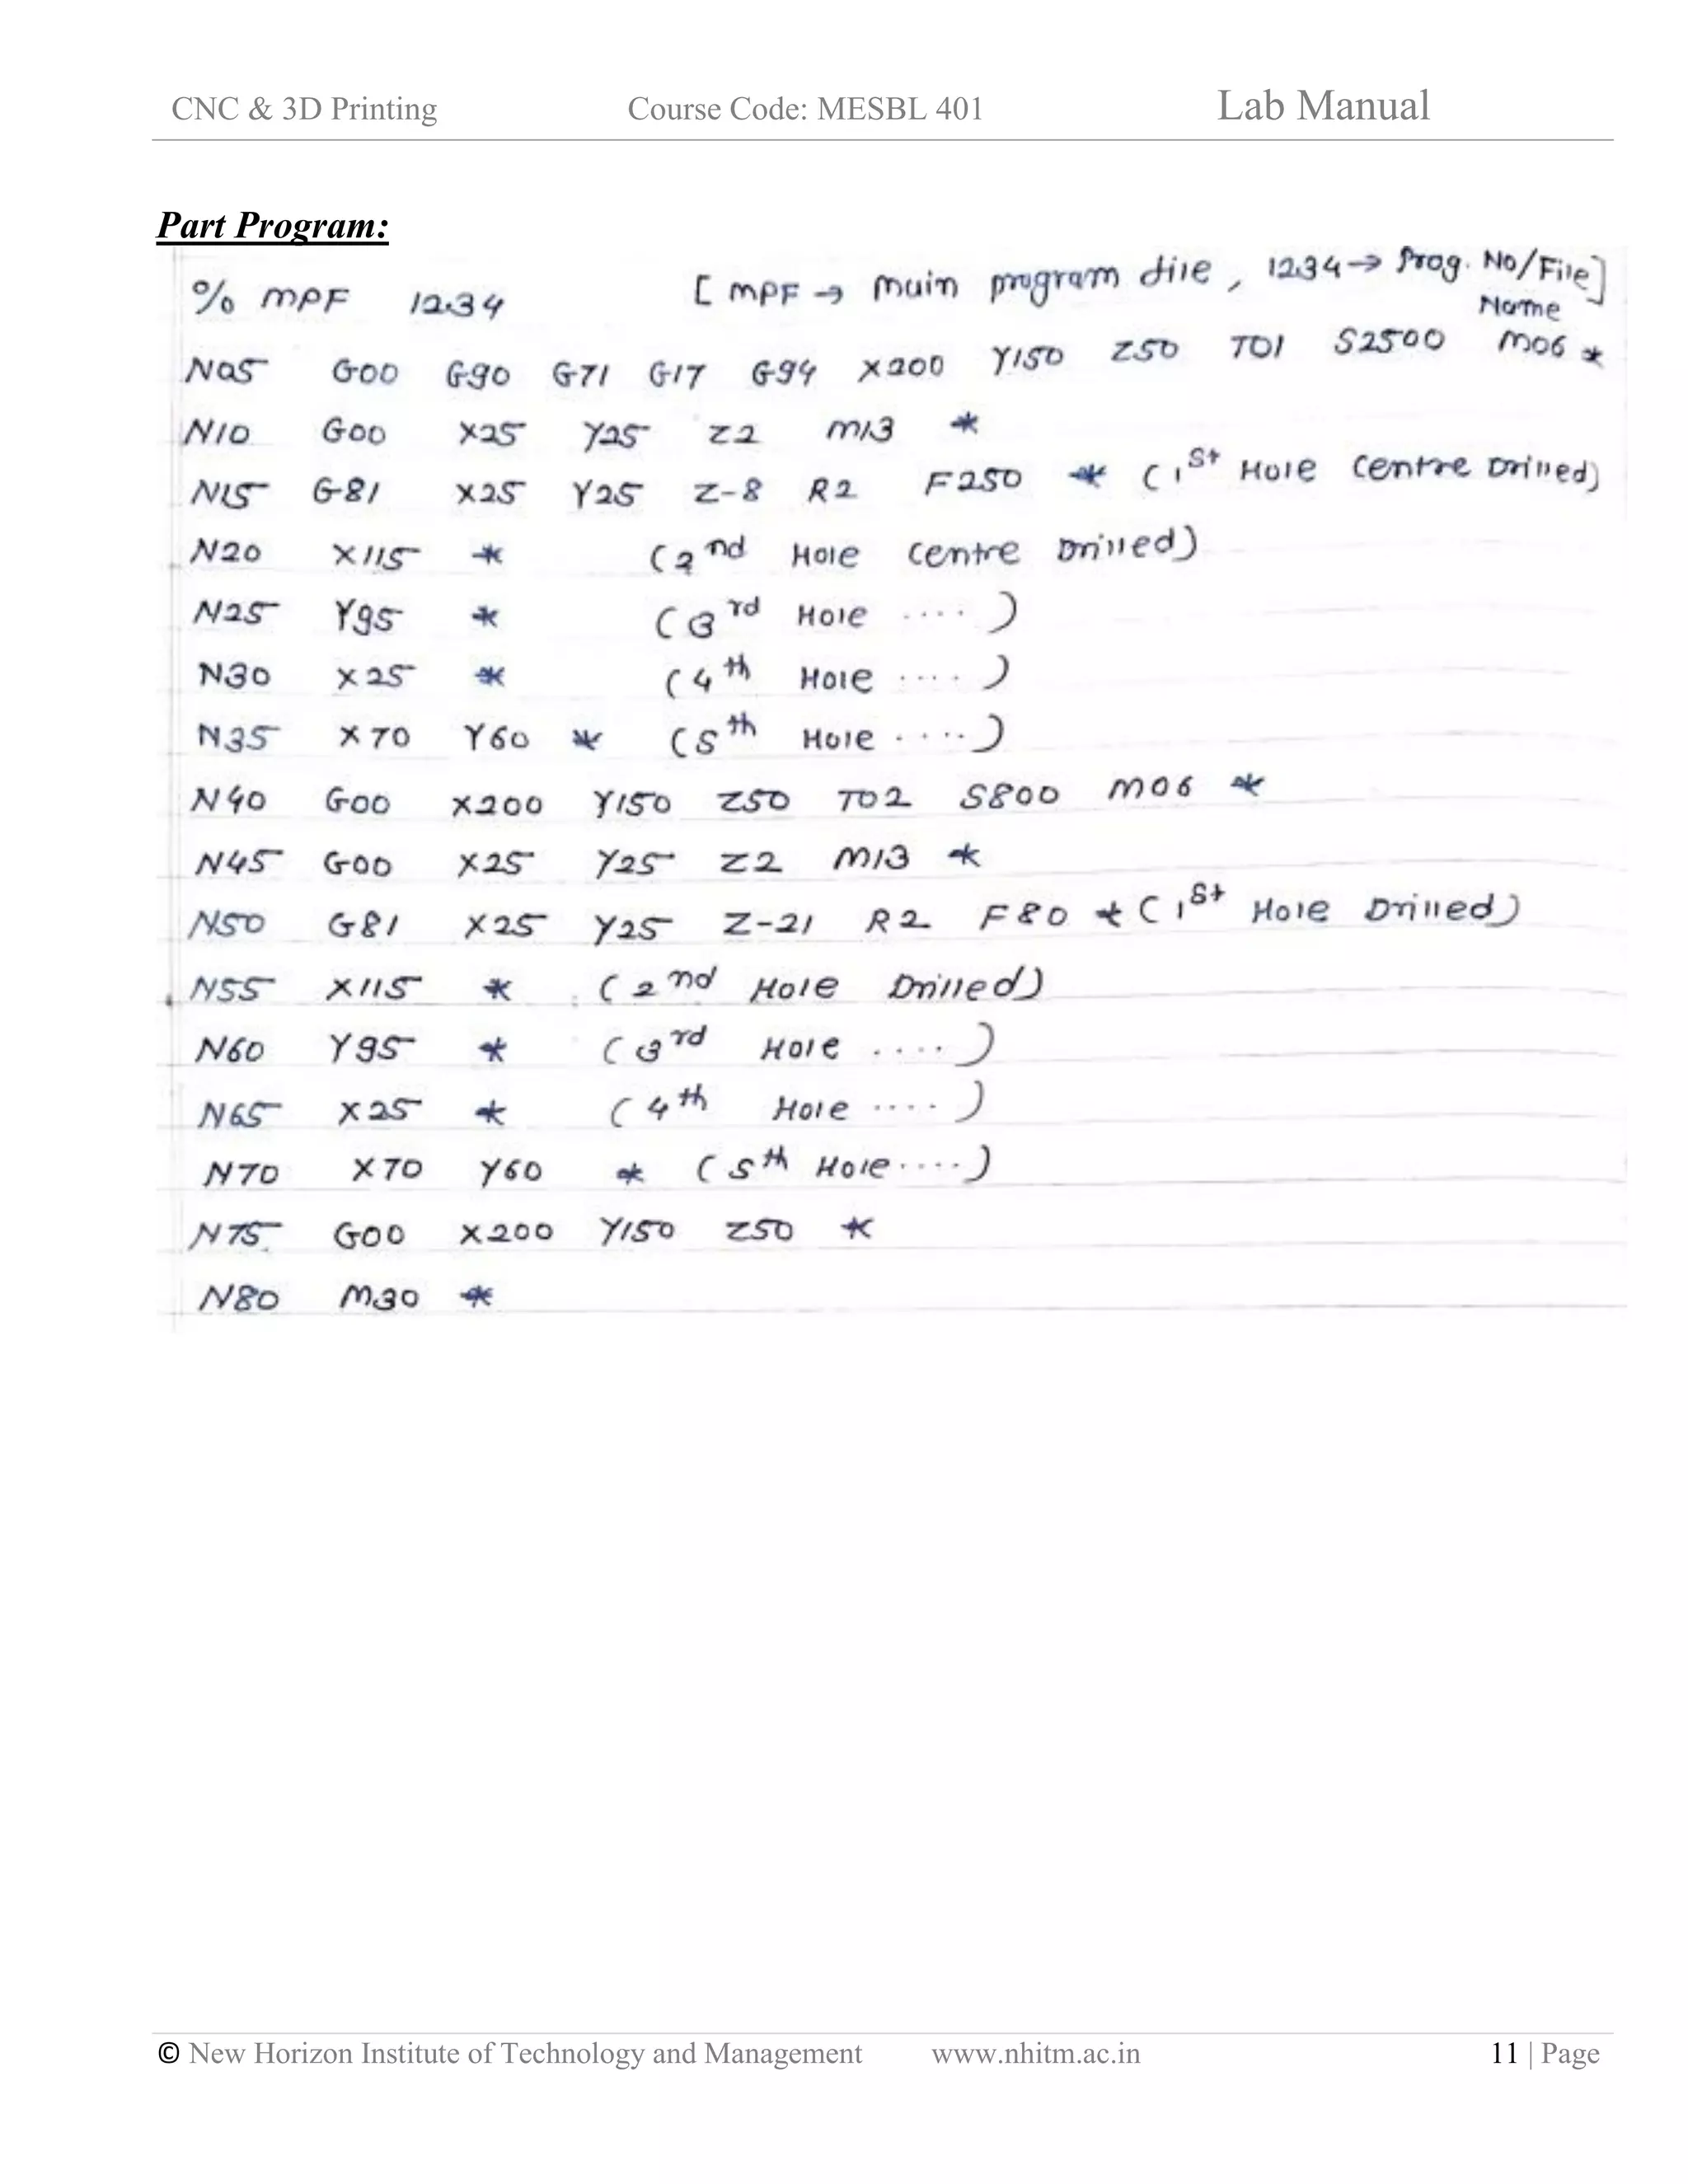 CNC & 3D Printing Course Code: MESBL 401 Lab Manual
Part Program:
% MPF 1234 [ MPF → main program file , 1234 → Prog. No/File]
Name
N05 G00 G90 G71 G17 G94 X200 Y150 Z50 T01 S2500 M06 *
N10 G00 X25 Y25 Z2 M13 *
N15 G81 X25 Y25 Z-8 R2 F250 * (1st Hole Centre Drilled)
N20 X115 * (2nd Hole Centre Drilled)
N25 Y95 * (3rd Hole ....)
N30 X25 * (4th Hole ....)
N35 X70 Y60 * (5th Hole ....)
N40 G00 X200 Y150 Z50 T02 S800 M06 *
N45 G00 X25 Y25 Z2 M13 *
N50 G81 X25 Y25 Z-21 R2 F80 * (1st Hole Drilled)
N55 X115 * (2nd Hole Drilled)
N60 Y95 * (3rd Hole ....)
N65 X25 * (4th Hole ....)
N70 X70 Y60 * (5th Hole ....)
N75 G00 X200 Y150 Z50 *
N80 M30 *
© New Horizon Institute of Technology and Management www.nhitm.ac.in 11 | Page